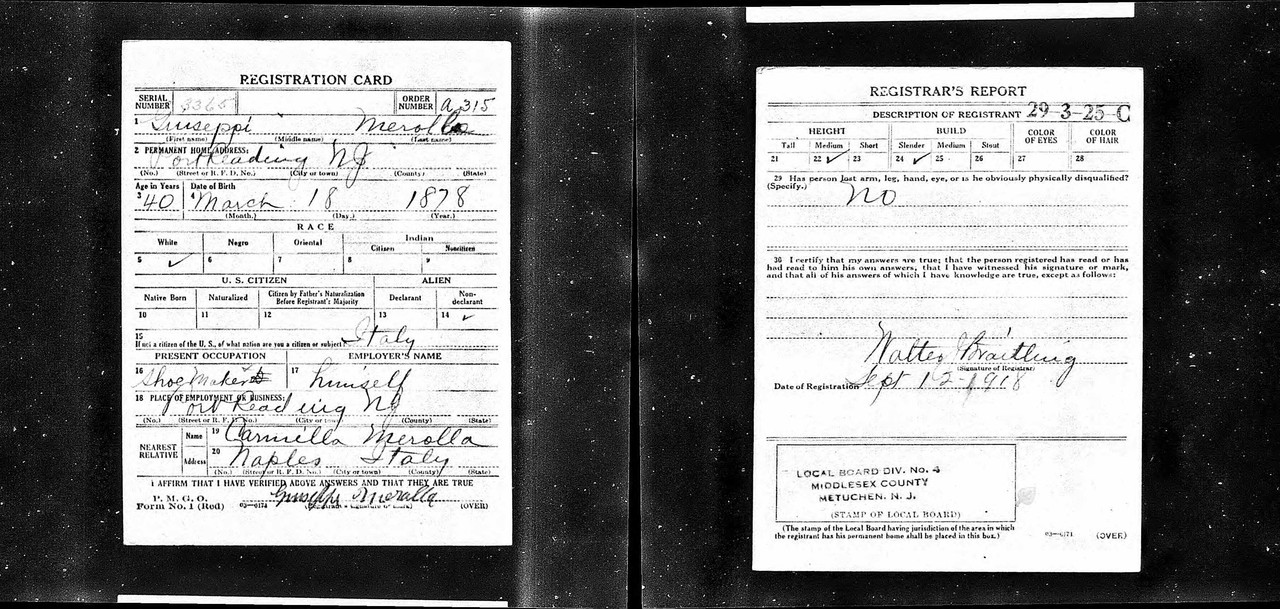 REGISTRATION CARD
SERIAL NUMBER 3365 ORDER NUMBER A 315
1 Giuseppi Merolla
(First name) (Middle name) (Last name)
2 PERMANENT HOME ADDRESS:
Port Reading NJ
(No.) (Street or R. F. D. No.) (City or town) (County) (State)
Age in Years Date of Birth
3 40 4 March 18 1878
(Month.) (Day.) (Year.)
RACE
White Negro Oriental Indian
Citizen Noncitizen
5 ✓ 6 7 8 9
U. S. CITIZEN ALIEN
Native Born Naturalized Citizen by Father's Naturalization Before Registrant's Majority Declarant Non-declarant
10 11 12 13 14 ✓
15 If not a citizen of the U. S., of what nation are you a citizen or subject? Italy
PRESENT OCCUPATION EMPLOYER'S NAME
16 Shoe Maker 17 himself
18 PLACE OF EMPLOYMENT OR BUSINESS:
Port Reading NJ
(No.) (Street or R. F. D. No.) (City or town) (County) (State)
NEAREST RELATIVE
Name 19 Carmilla Merolla
Address 20 Naples Italy
(No.) (Street or R. F. D. No.) (City or town) (County) (State)
I AFFIRM THAT I HAVE VERIFIED ABOVE ANSWERS AND THAT THEY ARE TRUE
P. M. G. O.
Form No. 1 (Red) 03—6171 Giuseppi Merolla (OVER)
REGISTRAR'S REPORT
29-3-25-C
DESCRIPTION OF REGISTRANT
HEIGHT BUILD COLOR OF EYES COLOR OF HAIR
Tall Medium Short Slender Medium Stout
21 22 ✓ 23 24 ✓ 25 26 27 28
29 Has person lost arm, leg, hand, eye, or is he obviously physically disqualified?
(Specify.) No
30 I certify that my answers are true; that the person registered has read or has
had read to him his own answers, that I have witnessed his signature or mark,
and that all of his answers of which I have knowledge are true, except as follows:
Walter Braitling
(Signature of Registrar)
Date of Registration Sept 12-1918
LOCAL BOARD DIV. No. 4
MIDDLESEX COUNTY
METUCHEN, N. J.
(STAMP OF LOCAL BOARD)
(The stamp of the Local Board having jurisdiction of the area in which
the registrant has his permanent home shall be placed in this box.)
03—6171 (OVER)